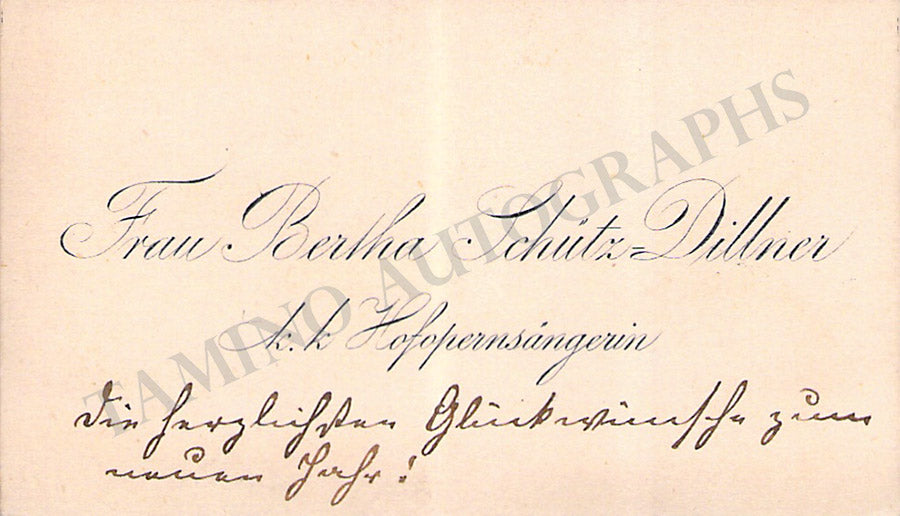 Frau Bertha Schütz=Dillner
k. k. Hofopernsängerin
die herzlichsten Glückwünsche zum
neuen Jahr!
TAMINO AUTOGRAPHS